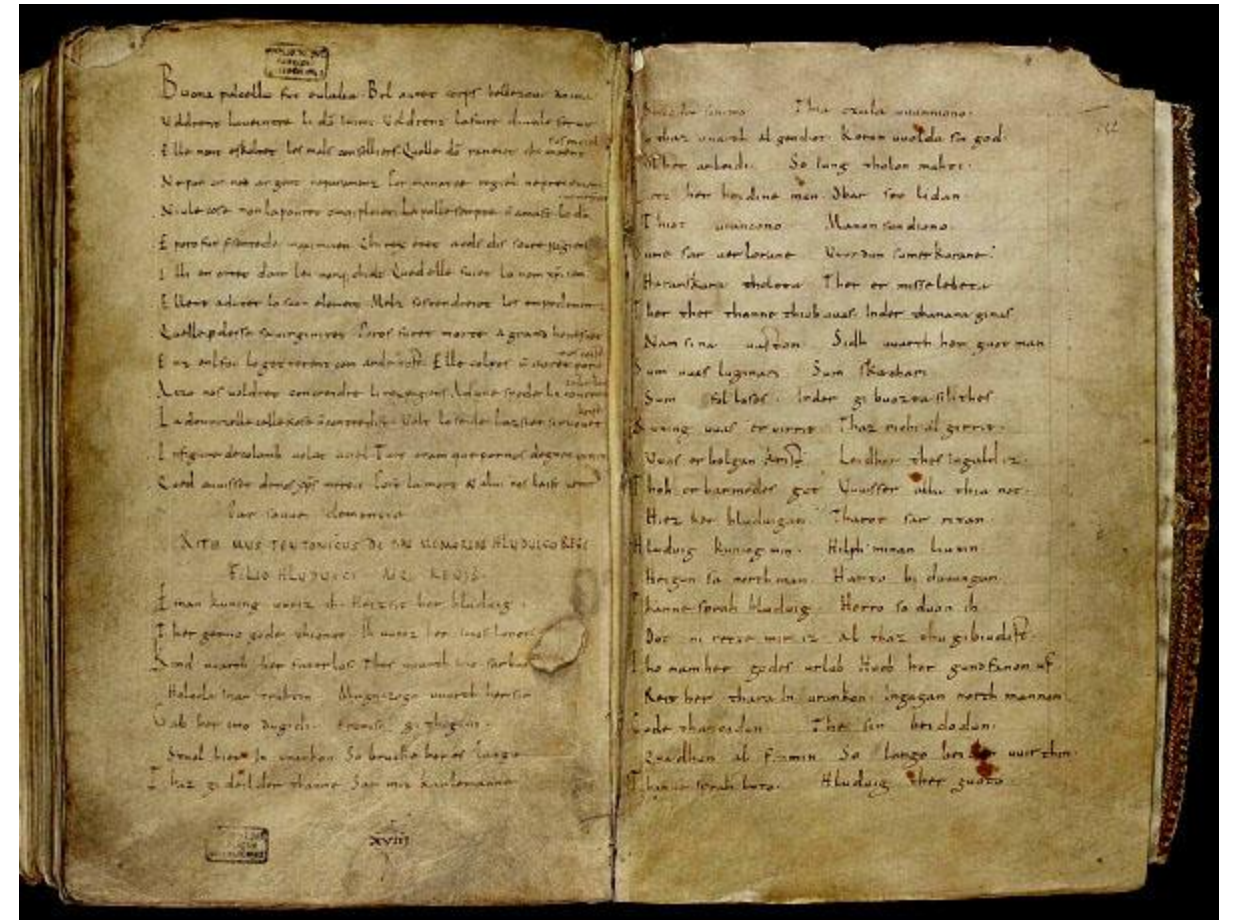 Buona pulcella fut eulalia. Bel auret corps bellezour anima
Voldrent laueintre li dō inimi. Voldrent lafaire diaule seruir
Elle nont eskoltet les mals conselliers. Quelle dō raneiet chi maent
Ne por or ned argent neparamenz. Por manatce regiel nepreiement
Niule cose non lapouret omq; pleier. Lapolle sempre ñ amast lo dō
E poro fut presentede maximiien. Chi rex eret a cels dis soure pagiens
Il li enortet dont lei nonq; chielt. Qued elle fuiet lo nom xp̄iien
Ellent adunet lo suon element. Melz sostendreiet les empedementz
Quelle perdesse sa uirginitet. Poros furet morte a grand honestet
Enz enl fou lo getterent com arde tost. Elle colpes ñ auret poro
nos coist
Aczo nos uoldret concreidre li rex pagiens. Ad une spede li
La domnizelle celle kose ñ contredist. Volt lo seule lazsier si ruouet
krist
In figure de colomb uolat a ciel. Tuit oram que por nos degnet
Qued auuisset de nos xp̄s mercit. Post la mort & a lui nos laist uenir
Par souue clementia
RITHMUS TEUTONICUS DE PIAE MEMORIAE HLUDUICO REGE
FILIO HLUDUICI AEQ; REGIS.
Einan kuning uueiz ih. Heizsit her hluduig.
Ther gerno gode thionot. Ih uueiz her imos lonot.
Kind uuarth her faterlos. Thes uuarth imo sar buoz
Holoda inan truhtin. Magaczogo uuarth her sin
Gab her imo dugidi. Fronisc githigini.
Stual hier in urankon. So bruche her es lango
Thaz gideilder thanne. Sar mit karlemanne
XVIII
Thia czala uuunniono.
So thaz uuarth al gendiot. Koron uuolda sin god.
Ob her arbeidi. So iung tholon mahti.
Lietz her heidine man. Obar seo lidan.
Thiot urancono. Manon sundiono.
Sume sar uerlorane. Uuurdun sumerkorane.
Haranskara tholota. Ther er misselebeta
Ther ther thanne thiob uuas. Inder thanana ginas
Nam sina uaston. Sidh uuarth her guot man
Sum uuas luginari. Sum skachari
Sum fol loses. Inder gibuozta sih thes
Kuning uuas eruirrit. Thaz richi al girrit.
Uuas erbolgan krist. Leidhor thes ingald iz.
Thoh erbarmedes got. Uuisser alla thia not.
Hiez her hluduigan. Tharot sar ritan.
Hluduig kuning min. Hilph minan liutin.
Heigun sa northman. Harto biduuungan.
Thanne sprah hluduig. Herro so duon ih
Dot ni rette mir iz. Al thaz thu gibiudist.
Tho nam her godes urlub. Huob her gundfanon uf
Reit her thara in urankon. Ingagan northmannon
Gode thancodun. The sin beidodun.
Quadhun al fromin. So lango beidon uuir thin.
Thanne sprah luto. Hluduig ther guoto